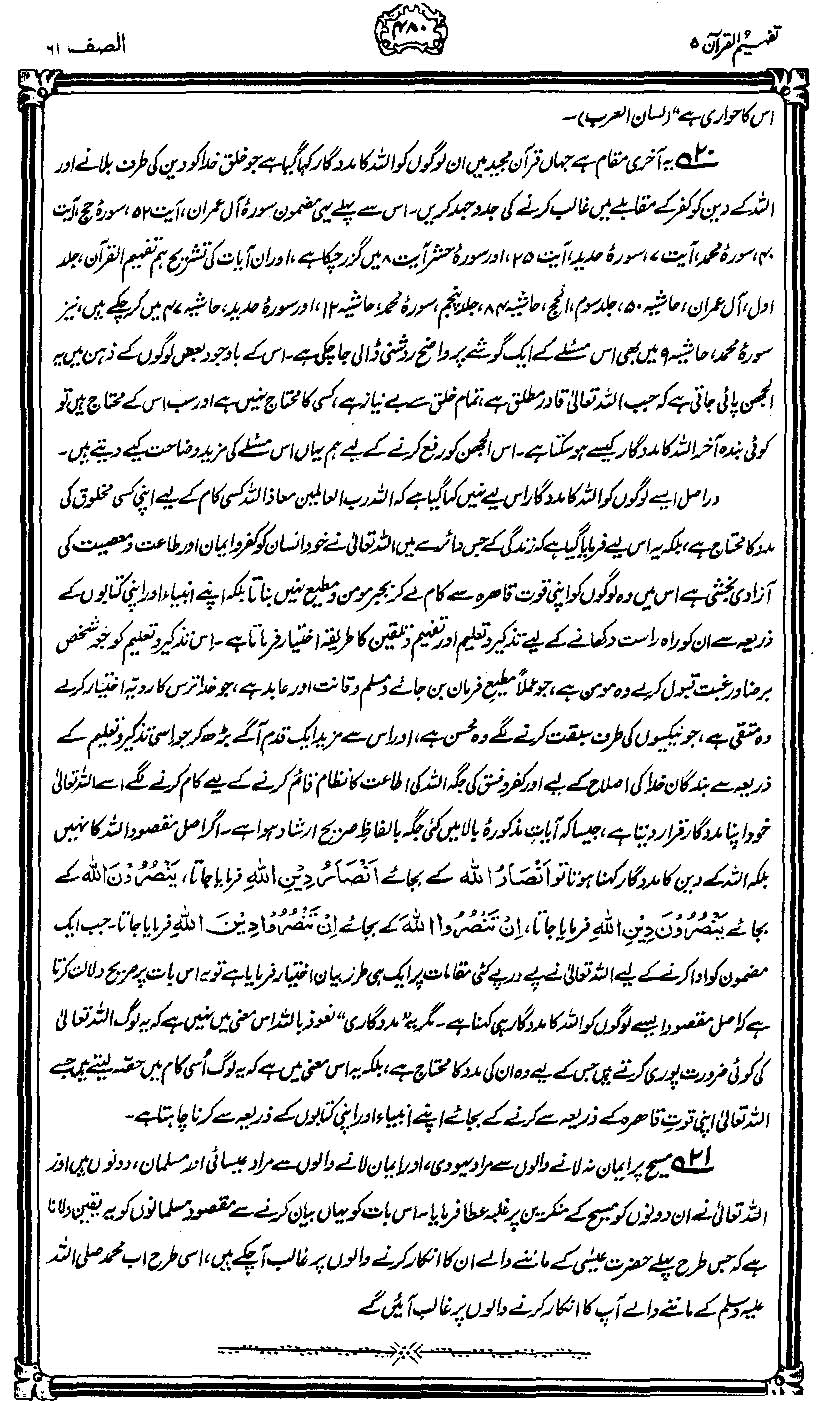 تفہیم القرآن ۵
۴۸۰
الصف ۶۱
اس کا حواری ہے" (لسان العرب)۔
۲۰ یہ آخری مقام ہے جہاں قرآن مجید میں ان لوگوں کو اللہ کا مددگار کہا گیا ہے جو خلق خدا کو دین کی طرف بلانے اور
اللہ کے دین کو کفر کے مقابلے میں غالب کرنے کی جدوجہد کریں۔ اس سے پہلے یہی مضمون سورۂ آل عمران، آیت ۵۲، سورۂ حج، آیت
۴۰، سورۂ محمد، آیت ۷، سورۂ حدید، آیت ۲۵، اور سورۂ حشر آیت ۸ میں گزر چکا ہے، اور ان آیات کی تشریح ہم تفہیم القرآن، جلد
اول، آل عمران، حاشیہ ۵۰، جلد سوم، الحج، حاشیہ ۸۴، جلد پنجم، سورۂ محمد، حاشیہ ۱۲، اور سورۂ حدید، حاشیہ ۴۷ میں کر چکے ہیں، نیز
سورۂ محمد، حاشیہ ۹ میں بھی اس مسئلے کے ایک گوشے پر واضح روشنی ڈالی جا چکی ہے۔ اس کے باوجود بعض لوگوں کے ذہن میں یہ
الجھن پائی جاتی ہے کہ جب اللہ تعالیٰ قادر مطلق ہے، تمام خلق سے بے نیاز ہے، کسی کا محتاج نہیں ہے اور سب اس کے محتاج ہیں تو
کوئی بندہ آخر اللہ کا مددگار کیسے ہو سکتا ہے۔ اس الجھن کو رفع کرنے کے لیے ہم یہاں اس مسئلے کی مزید وضاحت کیے دیتے ہیں۔
دراصل ایسے لوگوں کو اللہ کا مددگار اس لیے نہیں کہا گیا ہے کہ اللہ رب العالمین معاذ اللہ کسی کام کے لیے اپنی کسی مخلوق کی
مدد کا محتاج ہے، بلکہ یہ اس لیے فرمایا گیا ہے کہ زندگی کے جس دائرے میں اللہ تعالیٰ نے خود انسان کو کفر و ایمان اور طاعت و معصیت کی
آزادی بخشی ہے اس میں وہ لوگوں کو اپنی قوت قاہرہ سے کام لے کر بجبر مومن و مطیع نہیں بناتا بلکہ اپنے انبیاء اور اپنی کتابوں کے
ذریعہ سے ان کو راہ راست دکھانے کے لیے تذکیر و تعلیم اور تفہیم و تلقین کا طریقہ اختیار فرماتا ہے۔ اس تذکیر و تعلیم کو جو شخص
برضا و رغبت قبول کر لے وہ مومن ہے، جو عملاً مطیع فرمان بن جائے وہ مسلم و قانت اور عابد ہے، جو خدا ترسی کا رویہ اختیار کر لے
وہ متقی ہے، جو نیکیوں کی طرف سبقت کرنے لگے وہ محسن ہے، اور اس سے مزید ایک قدم آگے بڑھ کر جو اسی تذکیر و تعلیم کے
ذریعہ سے بندگان خدا کی اصلاح کے لیے اور کفر و فسق کی جگہ اللہ کی اطاعت کا نظام قائم کرنے کے لیے کام کرنے لگے اسے اللہ تعالیٰ
خود اپنا مددگار قرار دیتا ہے، جیسا کہ آیات مذکورۂ بالا میں کئی جگہ بالفاظِ صریح ارشاد ہوا ہے۔ اگر اصل مقصود اللہ کا نہیں
بلکہ اللہ کے دین کا مددگار کہنا ہوتا تو اَنْصَارُ اللہ کے بجائے اَنْصَارُ دِیْنِ اللہِ فرمایا جاتا، یَنْصُرُوْنَ اللہ کے
بجائے یَنْصُرُوْنَ دِیْنَ اللہِ فرمایا جاتا، اِنْ تَنْصُرُوا اللہ کے بجائے اِنْ تَنْصُرُوْا دِیْنَ اللہِ فرمایا جاتا۔ جب ایک
مضمون کو ادا کرنے کے لیے اللہ تعالیٰ نے پے در پے کئی مقامات پر ایک ہی طرز بیان اختیار فرمایا ہے تو یہ اس بات پر صریح دلالت کرتا
ہے کہ اصل مقصود ایسے لوگوں کو اللہ کا مددگار ہی کہنا ہے۔ مگر یہ "مددگاری" نعوذ باللہ اس معنی میں نہیں ہے کہ یہ لوگ اللہ تعالیٰ
کی کوئی ضرورت پوری کرتے ہیں جس کے لیے وہ ان کی مدد کا محتاج ہے، بلکہ یہ اس معنی میں ہے کہ یہ لوگ اُسی کام میں حصہ لیتے ہیں جسے
اللہ تعالیٰ اپنی قوتِ قاہرہ کے ذریعہ سے کرنے کے بجائے اپنے انبیاء اور اپنی کتابوں کے ذریعہ سے کرنا چاہتا ہے۔
۲۱ مسیح پر ایمان نہ لانے والوں سے مراد یہودی، اور ایمان لانے والوں سے مراد عیسائی اور مسلمان، دونوں ہیں اور
اللہ تعالیٰ نے ان دونوں کو مسیح کے منکرین پر غلبہ عطا فرمایا۔ اس بات کو یہاں بیان کرنے سے مقصود مسلمانوں کو یہ یقین دلانا
ہے کہ جس طرح پہلے حضرت عیسیٰ کے ماننے والے ان کا انکار کرنے والوں پر غالب آ چکے ہیں، اسی طرح اب محمد صلی اللہ
علیہ وسلم کے ماننے والے آپ کا انکار کرنے والوں پر غالب آئیں گے